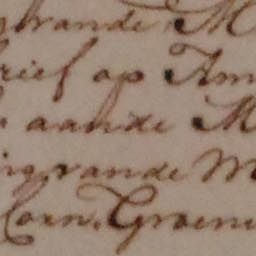 vande M
rief op Am
aande M
ing vande M
Corn. Groene